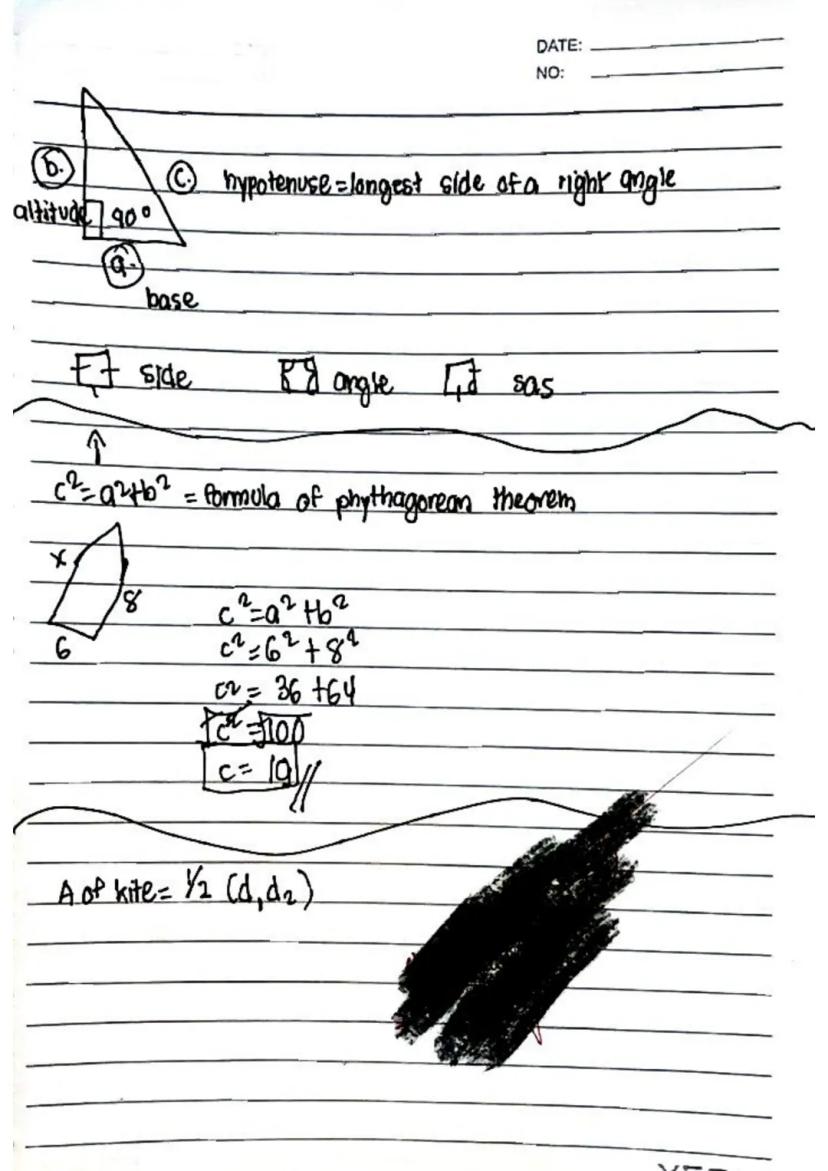 DATE:
NO:
b.
c. hypotenuse=longest side of a right angle
altitude 90°
a.
base
side angle sas
c²=a²+b² = formula of phythagorean theorem
x
8
6
c²=a²+b²
c²=6²+8²
c²= 36 +64
√c²=√100
c= 10//
A of kite= 1/2 (d₁d₂)